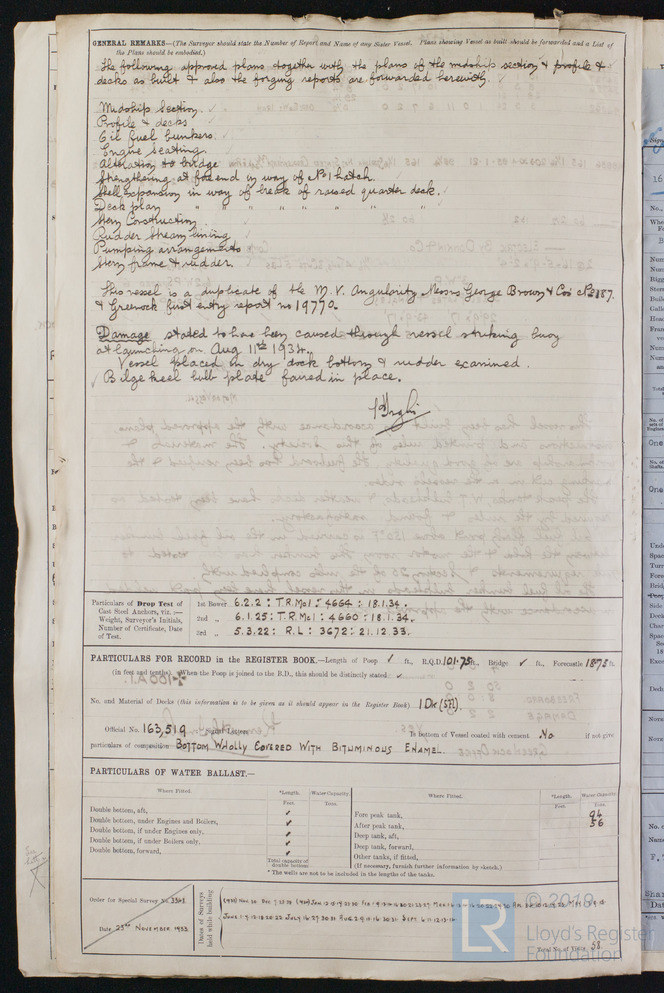 GENERAL REMARKS—(The Surveyor should state the Number of Report and Name of any Sister Vessel. Plans showing Vessel as built should be forwarded and a List of
the Plans should be embodied.)
The following approved plans together with the plans of the midship section & profile &
decks as built & also the forging reports are forwarded herewith.
Midship Section
Profile & decks
Oil fuel bunkers.
Engine Seating.
Alteration to bridge
Strengthening at fore end in way of No 1 hatch.
Shell Expansion in way of break of raised quarter deck.
Deck plan " " " " " " "
Stern Construction
Rudder Stream lining
Pumping arrangements
Stern frame & rudder.
This vessel is a duplicate of the M.V. Angularity Messrs George Brown & Cos No 187.
& Greenock first entry report no 19770.
Damage stated to have been caused through vessel striking buoy
at launching on Aug 11th 1934.
Vessel placed in dry dock bottom & rudder examined.
Bilge keel bulb plate faired in place.
Particulars of Drop Test of
Cast Steel Anchors, viz.:—
Weight, Surveyor's Initials,
Number of Certificate, Date
of Test.
1st Bower 6.2.2 : T.R.McI : 4664 : 18.1.34.
2nd " 6.1.25 : T.R.McI : 4660 : 18.1.34.
3rd " 5.3.22 : R.L : 3672 : 21.12.33.
PARTICULARS FOR RECORD in the REGISTER BOOK.—Length of Poop ✓ ft., R.Q.D. 101.75 ft., Bridge ✓ ft., Forecastle 18.75 ft.
(in feet and tenths). When the Poop is joined to the B.D., this should be distinctly stated
No. and Material of Decks (this information is to be given as it should appear in the Register Book) 1 Dk (Stl).
Official No. 163,519 Is bottom of Vessel coated with cement No. if not give
particulars of composition BOTTOM WHOLLY COVERED WITH BITUMINOUS ENAMEL.
PARTICULARS OF WATER BALLAST.—
Where Fitted. *Length. Water Capacity. Where Fitted. *Length. Water Capacity.
Feet. Tons. Feet. Tons.
Double bottom, aft, ✓ Fore peak tank, 94
Double bottom, under Engines and Boilers, ✓ After peak tank, 56
Double bottom, if under Engines only, ✓ Deep tank, aft,
Double bottom, if under Boilers only, ✓ Deep tank, forward,
Double bottom, forward, ✓ Other tanks, if fitted,
Total capacity of double bottom (If necessary, furnish further information by sketch.)
* The wells are not to be included in the lengths of the tanks.
Order for Special Survey No.
Date 23rd NOVEMBER 1933
Dates of Surveys
held while building
Total No. of Visits 58.
LR
© 2019
Lloyd's Register
Foundation